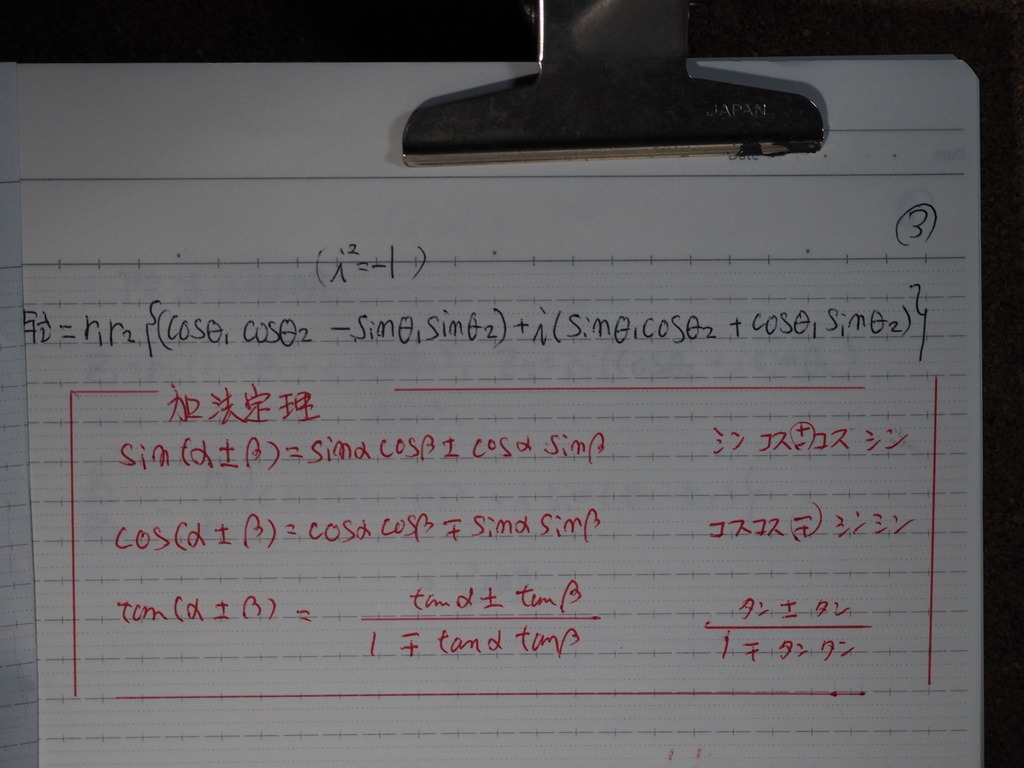 JAPAN
Date
③
(i²=-1)
与式=r₁r₂{(cosθ₁cosθ₂-sinθ₁sinθ₂)+i(sinθ₁cosθ₂+cosθ₁sinθ₂)}
加法定理
sin(α±β)=sinαcosβ±cosαsinβ シンコス±コスシン
cos(α±β)=cosαcosβ∓sinαsinβ コスコス∓シンシン
tan(α±β)= tanα±tanβ / 1∓tanαtanβ タン±タン / 1∓タンタン